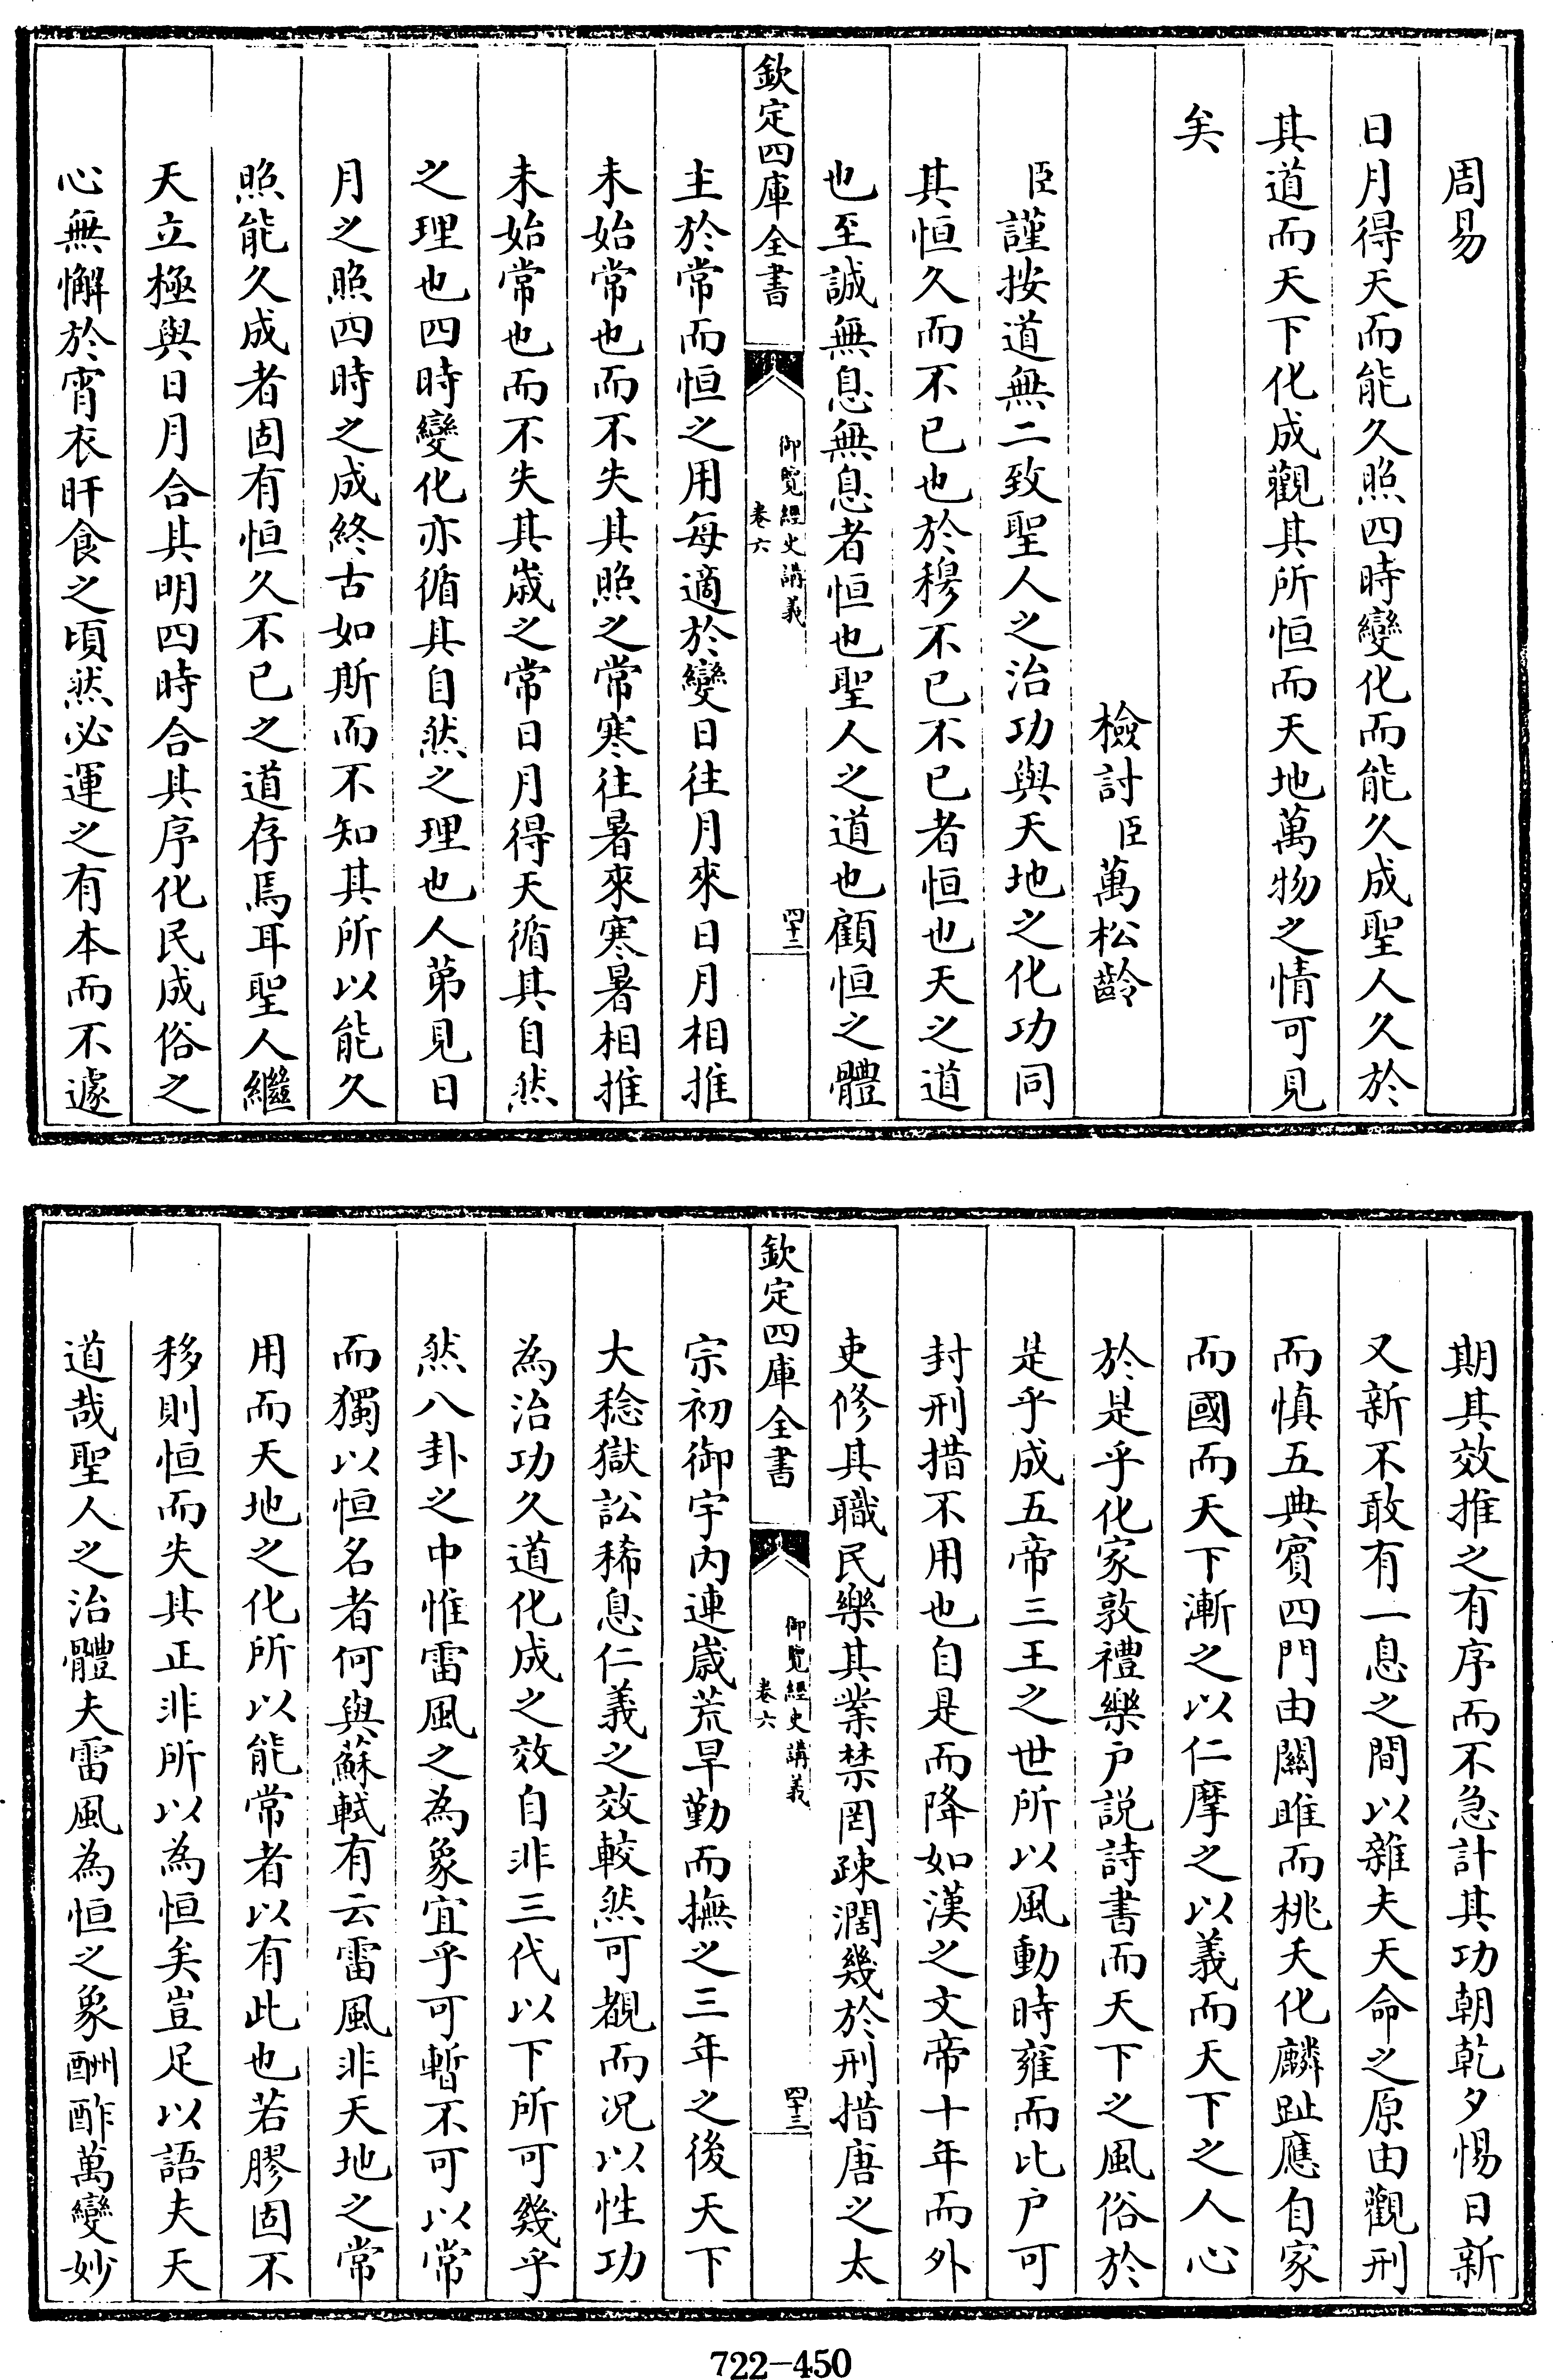 周易
日月得天而能久照四時變化而能久成聖人久於
其道而天下化成觀其所恒而天地萬物之情可見
矣
檢討臣萬松齡
臣謹按道無二致聖人之治功與天地之化功同
其恒久而不已也於穆不已不已者恒也天之道
也至誠無息無息者恒也聖人之道也顧恒之體
欽定四庫全書
御覽經史講義
卷六
四十二
主於常而恒之用每適於變日往月來日月相推
未始常也而不失其照之常寒往暑來寒暑相推
未始常也而不失其歲之常日月得天循其自然
之理也四時變化亦循其自然之理也人第見日
月之照四時之成終古如斯而不知其所以能久
照能久成者固有恒久不已之道存焉耳聖人繼
天立極與日月合其明四時合其序化民成俗之
心無懈於宵衣旰食之頃然必運之有本而不遽
期其效推之有序而不急計其功朝乾夕惕日新
又新不敢有一息之間以雜夫天命之原由觀刑
而慎五典賓四門由關雎而桃夭化麟趾應自家
而國而天下漸之以仁摩之以義而天下之人心
於是乎化家敦禮樂戶説詩書而天下之風俗於
是乎成五帝三王之世所以風動時雍而比戶可
封刑措不用也自是而降如漢之文帝十年而外
吏修其職民樂其業禁罔疎濶幾於刑措唐之太
欽定四庫全書
御覽經史講義
卷六
四十三
宗初御宇內連歲荒旱勤而撫之三年之後天下
大稔獄訟稀息仁義之效較然可覩而況以性功
為治功久道化成之效自非三代以下所可幾乎
然八卦之中惟雷風之為象宜乎可暫不可以常
而獨以恒名者何與蘇軾有云雷風非天地之常
用而天地之化所以能常者以有此也若膠固不
移則恒而失其正非所以為恒矣豈足以語夫天
道哉聖人之治體夫雷風為恒之象酬酢萬變妙
722-450